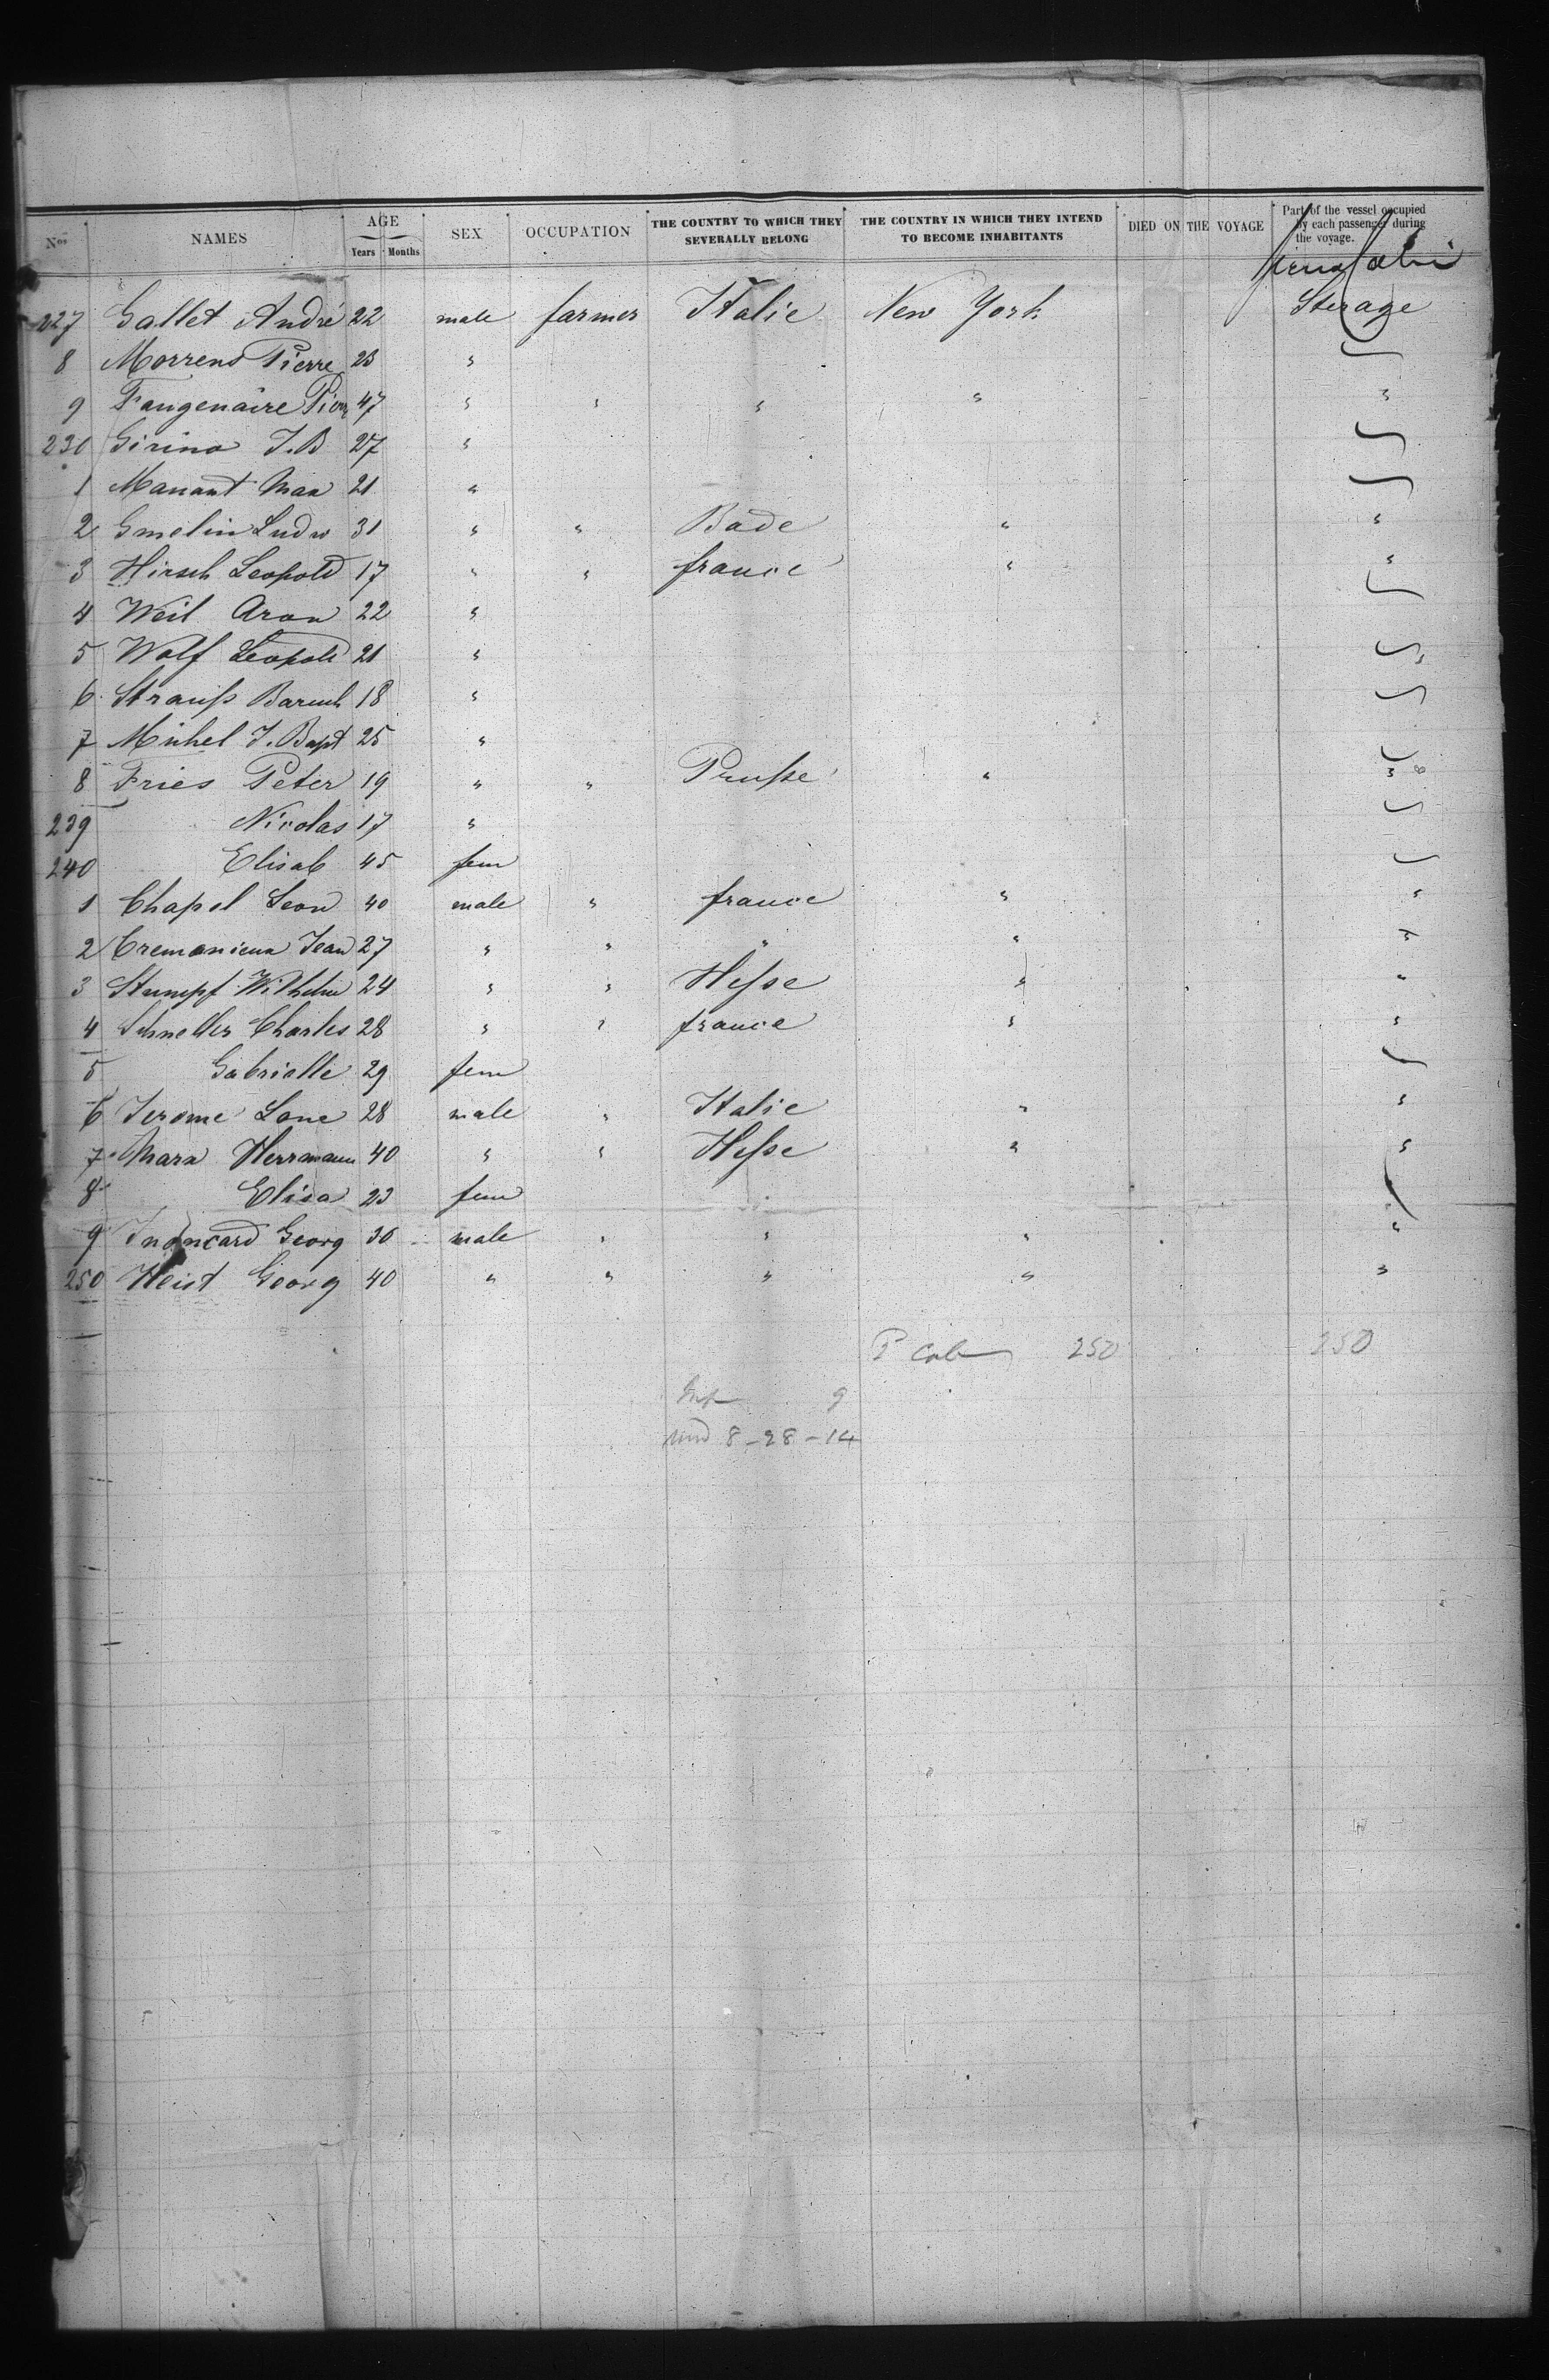 Nos NAMES AGE Years Months SEX OCCUPATION THE COUNTRY TO WHICH THEY SEVERALLY BELONG THE COUNTRY IN WHICH THEY INTEND TO BECOME INHABITANTS DIED ON THE VOYAGE Part of the vessel occupied by each passenger during the voyage.
227 Gallet André 22 male farmer Italie New York Sterage
8 Morrens Pierre 23 "
9 Faugenaire Pierre 47 " " " " "
230 Girino J. B 27 "
1 Manant Max 21 "
2 Gmelin Ludw 31 " " Bade " "
3 Hirsch Leopold 17 " " france " "
4 Weil Aron 22 "
5 Wolf Leopold 21 " "
6 Strauß Baruch 18 "
7 Michel J. Bapt 25 "
8 Fries Peter 19 " " Pruße " "
239 Nicolas 17 "
240 Elisab 45 fem
1 Chapel Leon 40 male " france " "
2 Cremonieux Jean 27 " " " " "
3 Stumpf Wilhelm 24 " " Heße " "
4 Schneller Charles 28 " " france " "
5 Gabrielle 29 fem
6 Jerome Lone 28 male " Italie " "
7 Marx Herrmann 40 " " Heße " "
8 Elisa 23 fem
9 Georg 36 male " " " "
250 Heist Georg 40 " " " " "
250 250
9
8-28-14